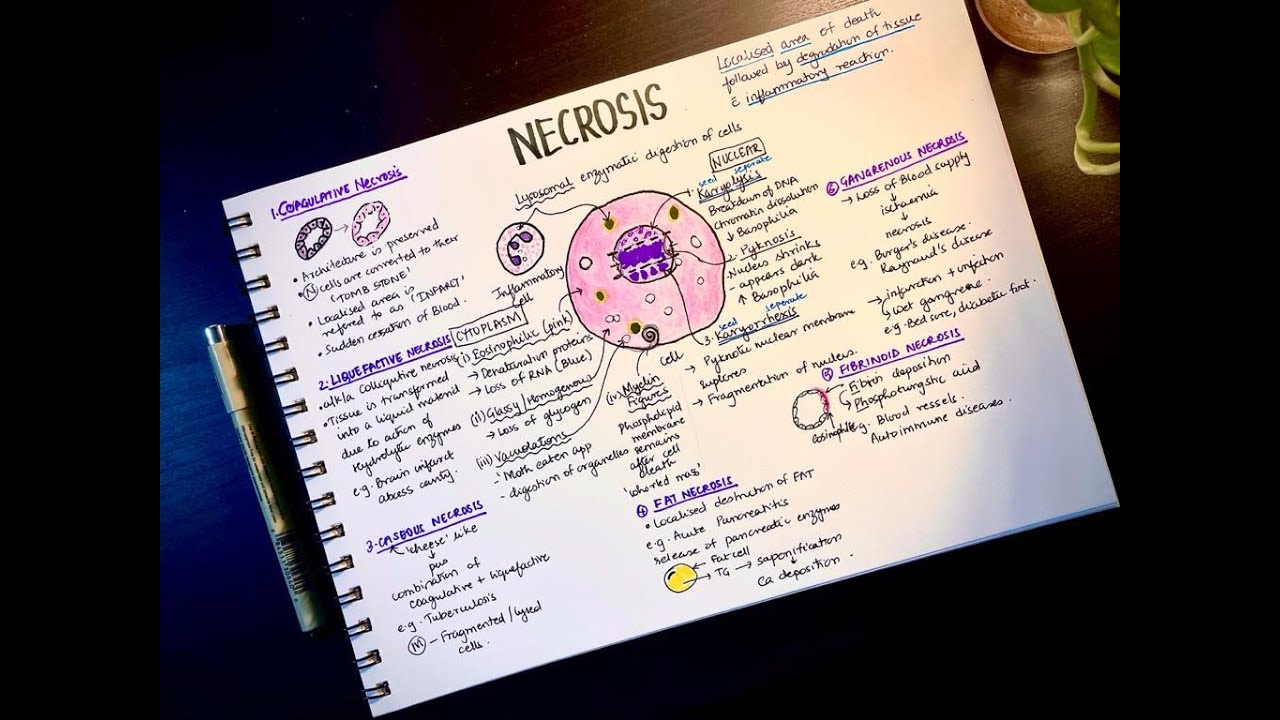 NECROSIS
Localised area of death
followed by degradation of tissue
c̄ inflammatory reaction.
Lysosomal enzymatic digestion of cells
Inflammatory
cell
cell
1. COAGULATIVE NECROSIS
• Architecture is preserved
• (N) cells are converted to their
'TOMB STONE'
• Localised area is
referred to as 'INFARCT'
• Sudden cessation of Blood.
2. LIQUEFACTIVE NECROSIS
• a/k/a colliquitive necrosis
• Tissue is transformed
into a liquid material
due to action of
Hydrolytic enzymes
e.g. Brain infarct
abcess cavity.
3. CASEOUS NECROSIS
'cheese' like
pus
combination of
coagulative + liquefactive
e.g. Tuberculosis
(M) - Fragmented/lysed
cells.
CYTOPLASM
(i) Eosinophilic (pink)
→ Denaturation proteins
→ Loss of RNA (Blue)
(ii) Glassy/Homogenous
→ Loss of glycogen
(iii) Vacuolations
- 'Moth eaten' app
- digestion of organelles
(iv) Myelin
Figures
Phospholipid
membrane
remains
after cell
death
'whorled mass'
NUCLEAR
seed seperate
1. Karyolysis
Breakdown of DNA
Chromatin dissolution
↓ Basophilia
2. Pyknosis
- Nucleus shrinks
- appears dark
↑ Basophilia
seed seperate
3. Karyorrhexis
→ Pyknotic nuclear membrane
ruptures
→ Fragmentation of nucleus.
④ FAT NECROSIS
• Localised destruction of FAT
e.g. Acute Pancreatitis
release of pancreatic enzymes
Fat cell
TG → saponification
Ca deposition.
⑤ FIBRINOID NECROSIS
Fibrin deposition
Phosphotungstic acid
eosinophilic
e.g. Blood vessels.
Autoimmune diseases.
⑥ GANGRENOUS NECROSIS
→ Loss of Blood supply
↓
ischaemia
↓
necrosis
e.g. Burger's disease.
Raynaud's disease
→ infarction + infection
↳ wet gangrene.
e.g. Bed sore, diabetic foot.